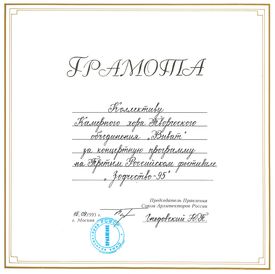 ГРАМОТА
Коллективу
Камерного хора Творческого
объединения „Виват"
за концертную программу
на Третьем Российском фестивале
„Зодчество-95"
Председатель Правления
Союза Архитекторов России
г. Москва